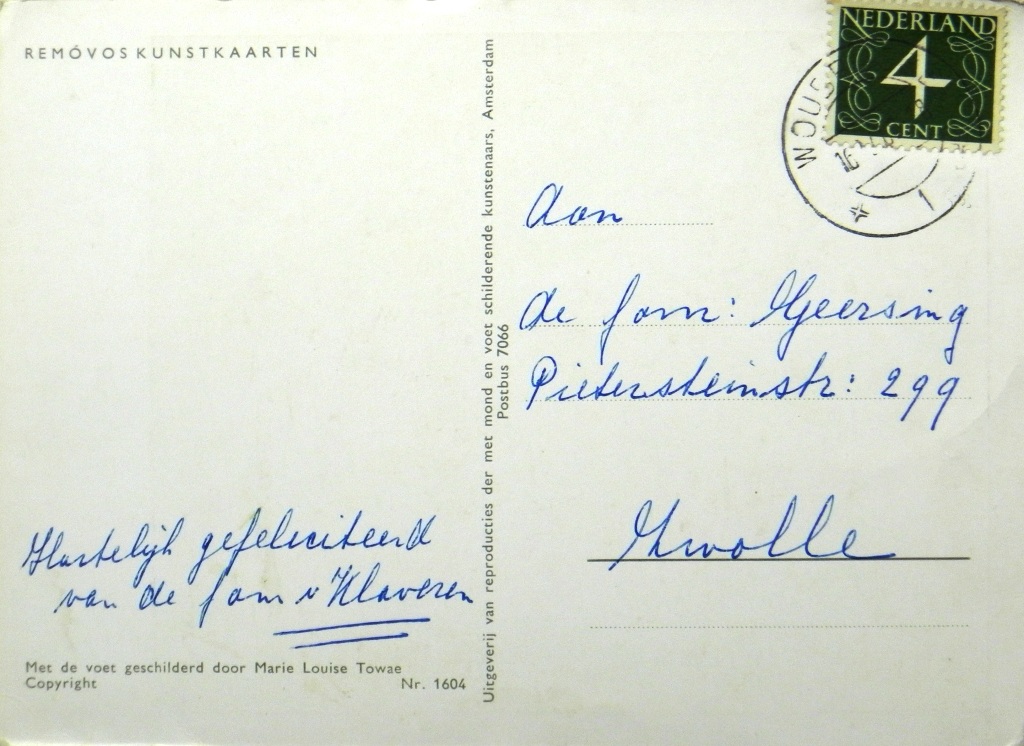 REMÓVOS KUNSTKAARTEN
Hartelijk gefeliciteerd
van de fam v Klaveren
Met de voet geschilderd door Marie Louise Towae
Copyright Nr. 1604
Uitgeverij van reproducties der met mond en voet schilderende kunstenaars, Amsterdam
Postbus 7066
NEDERLAND
4
CENT
1
Aan
de fam: Geersing
Pietersteinstr: 299
Zwolle